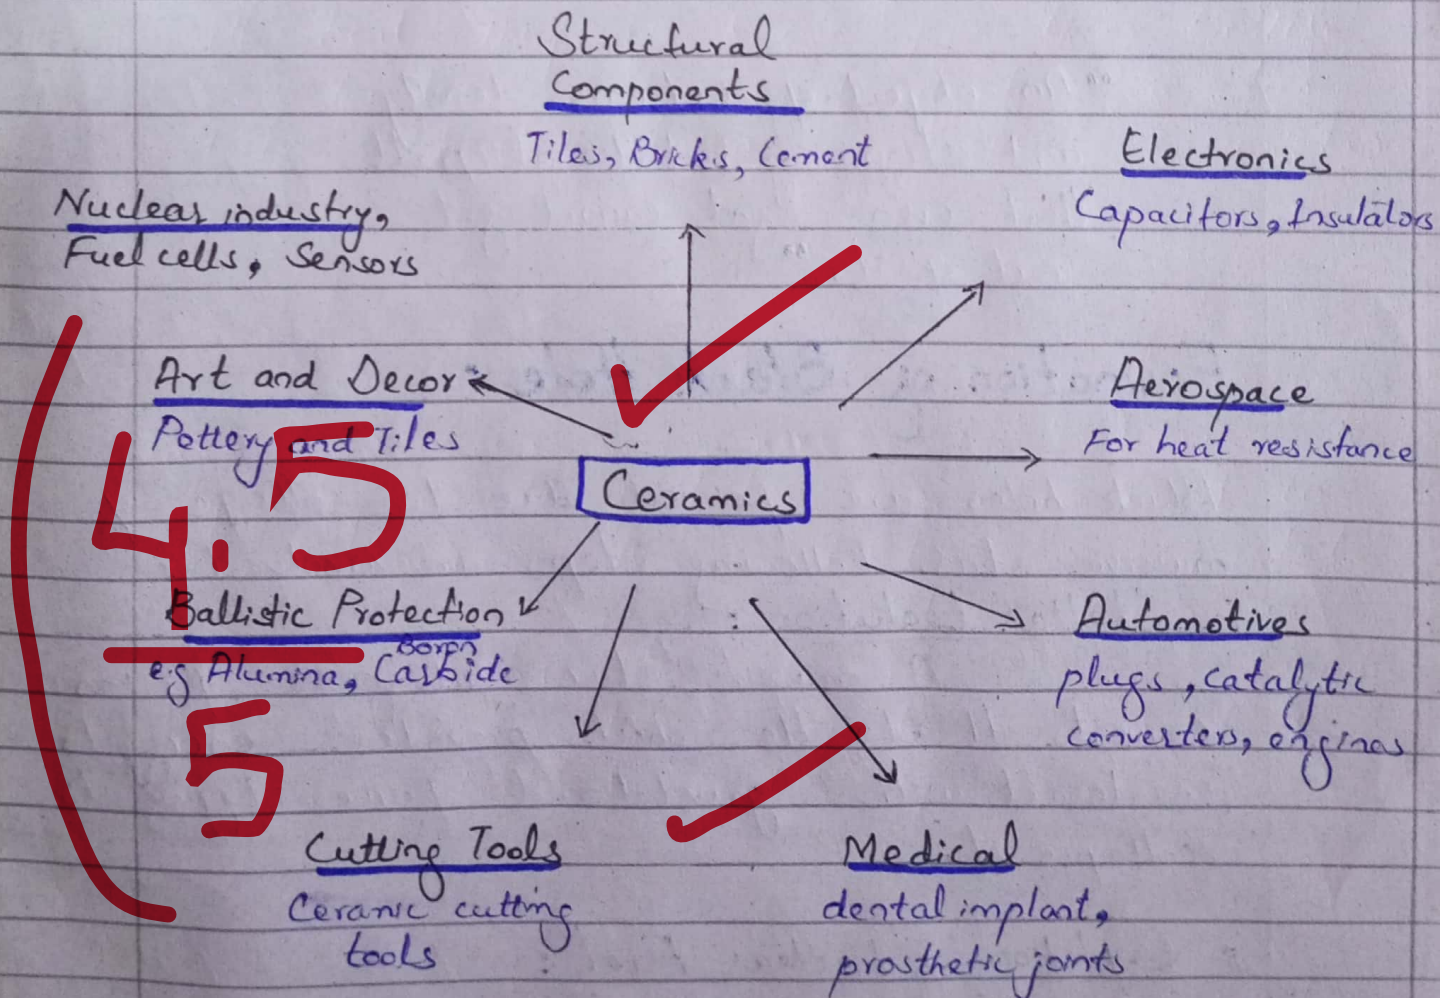 Structural
Components
Tiles, Bricks, Cement
Electronics
Capacitors, Insulators
Nuclear industry,
Fuel cells, Sensors
Art and Decor
Pottery and Tiles
Aerospace
For heat resistance
Ceramics
4.5
5
Ballistic Protection
Boron
e.g Alumina, Carbide
Automotives
plugs, catalytic
converters, engines
Cutting Tools
Ceramic cutting
tools
Medical
dental implant,
prosthetic joints